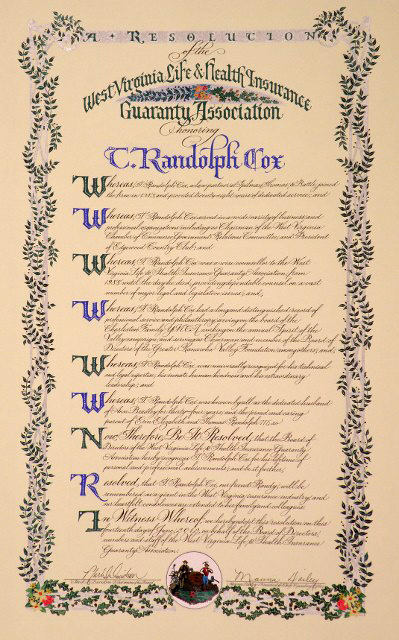 A · RESOLUTION
of the
West Virginia Life & Health Insurance
Guaranty Association
honoring
T. Randolph Cox
Whereas, T. Randolph Cox, a law partner at Spilman, Thomas & Battle, joined
the firm in and provided years of dedicated service; and
Whereas, T. Randolph Cox served in a wide variety of business and
professional organizations including as Chairman of the West Virginia
Chamber of Commerce Government Relations Committee, and President
of Edgewood Country Club; and
Whereas, T. Randolph Cox was a wise counsellor to the West
Virginia Life & Health Insurance Guaranty Association from
until the day he died, providing dependable counsel on a vast
number of major legal and legislative issues; and,
Whereas, T. Randolph Cox had a long and distinguished record of
professional service and philanthropy, serving on the board of the
Charleston Family YMCA, the annual Spirit of the
Valley campaign, and serving as Chairman and member of the Board of
Directors of the Greater Kanawha Valley Foundation, among others; and,
Whereas, T. Randolph Cox, was universally recognized for his technical
and legal expertise, his innate human kindness and his extraordinary
leadership; and
Whereas, T. Randolph Cox was known by all as the dedicated husband
of Ann Bradley for thirty-four years, and the proud and caring
parent of Erin Elizabeth and Thomas Randolph
Now, Therefore, Be It Resolved, that the Board of
Directors of the West Virginia Life & Health Insurance Guaranty
Association hereby recognizes T. Randolph Cox for his lifetime of
personal and professional achievements; and be it further,
Resolved, that T. Randolph Cox, our friend Randy, will be
remembered as a giant in the West Virginia insurance industry and
our heartfelt condolences extended to his family and colleagues.
In Witness Whereof, we hereby adopt this resolution on this
day of on behalf of the Board of Directors,
members and staff of the West Virginia Life & Health Insurance
Guaranty Association.